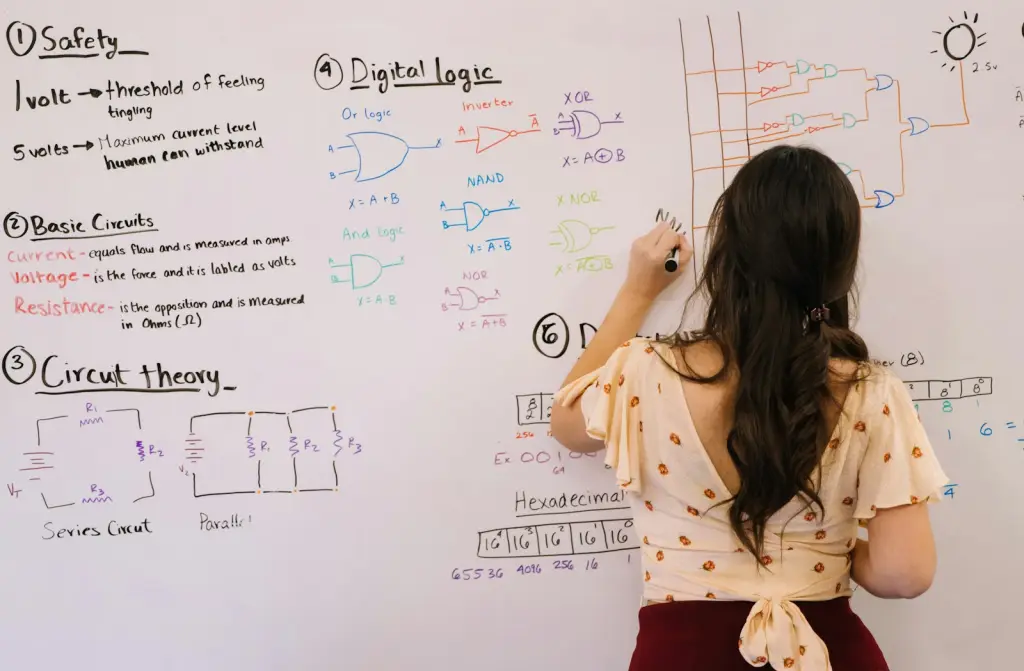 1 Safety
1 volt → threshold of feeling
tingling
5 volts → Maximum current level
human can withstand
2 Basic Circuits
Current - equals flow and is measured in amps
Voltage - is the force and it is labled as volts
Resistance - is the opposition and is measured
in Ohms (Ω)
3 Circut theory
R1
R2
R3
VT
Series Circut
R1
R2
R3
Parallel
4 Digital logic
Or logic
A
B
X
X = A + B
Inverter
A
A̅
XOR
A
B
X
X = A ⊕ B
NAND
A
B
X
X = A̅ ̅·̅ ̅B̅
X NOR
X = A̅ ̅⊕̅ ̅B̅
And logic
X = A·B
NOR
X
X = A̅+̅B̅
2.5v
(8)
8¹
8⁰
256
8
1
Ex. 0 0 1
64
1
6 =
4
Hexadecimal
16⁴ 16³ 16² 16¹ 16⁰
65536 4096 256 16 1